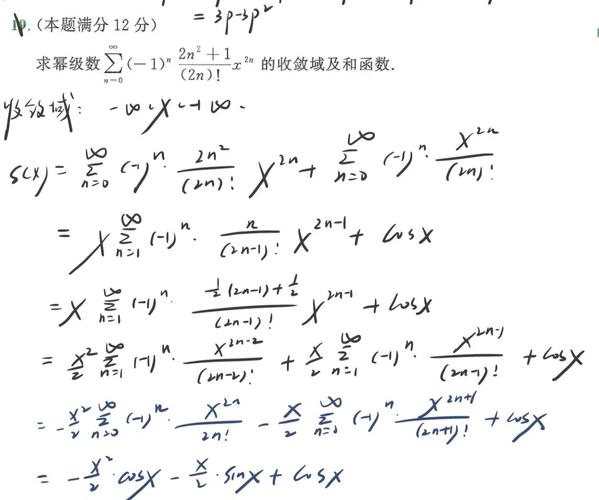 19.(本题满分12分)
= 3p-3p²
求幂级数 \sum_{n=0}^{\infty}(-1)^n \frac{2n^2+1}{(2n)!}x^{2n} 的收敛域及和函数.
收敛域: -∞<x<+∞.
S(x) = \sum_{n=0}^{\infty}(-1)^n·\frac{2n^2}{(2n)!}x^{2n} + \sum_{n=0}^{\infty}(-1)^n·\frac{x^{2n}}{(2n)!}
= x\sum_{n=1}^{\infty}(-1)^n·\frac{n}{(2n-1)!}x^{2n-1} + cosx
= x\sum_{n=1}^{\infty}(-1)^n·\frac{\frac{1}{2}(2n-1)+\frac{1}{2}}{(2n-1)!}x^{2n-1} + cosx
= \frac{x^2}{2}\sum_{n=1}^{\infty}(-1)^n·\frac{x^{2n-2}}{(2n-2)!} + \frac{x}{2}\sum_{n=1}^{\infty}(-1)^n·\frac{x^{2n-1}}{(2n-1)!} + cosx
= -\frac{x^2}{2}\sum_{n=0}^{\infty}(-1)^n·\frac{x^{2n}}{2n!} - \frac{x}{2}\sum_{n=0}^{\infty}(-1)^n·\frac{x^{2n+1}}{(2n+1)!} + cosx
= -\frac{x^2}{2}·cosx - \frac{x}{2}·sinx + cosx